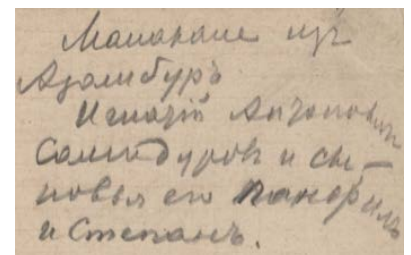 Малакане изъ
Азамбуръ
Игнатій Антонович
Самодуровъ и сы-
новья его Панфилъ
и Степанъ.